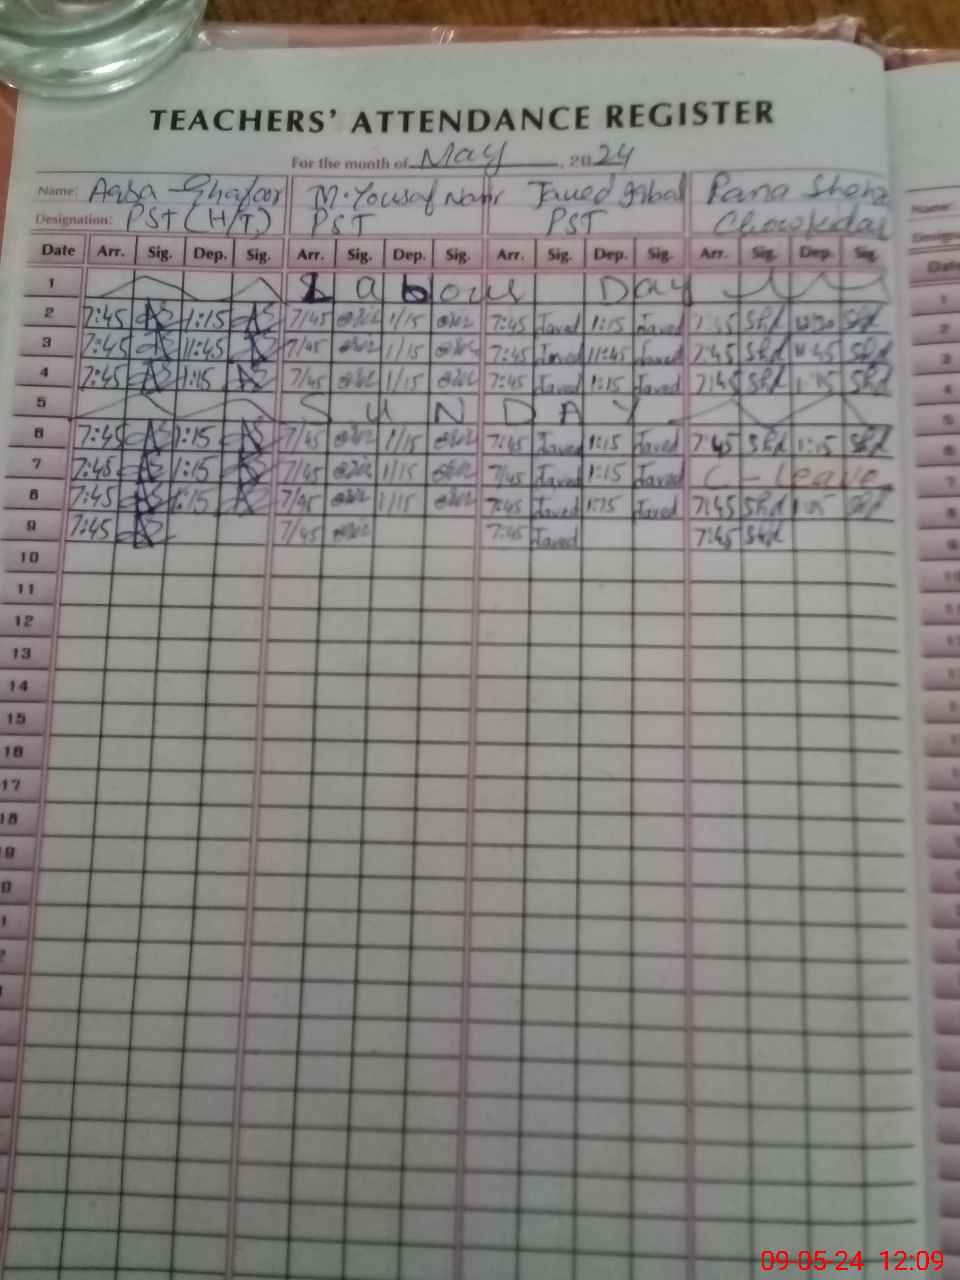 TEACHERS' ATTENDANCE REGISTER
For the month of May, 2024
Name: Aqsa Ghafoor M. Yousaf Nasir Javed Iqbal Rana Name:
Designation: PST (H/T) PST PST Chowkidar
Date Arr. Sig. Dep. Sig. Arr. Sig. Dep. Sig. Arr. Sig. Dep. Sig. Arr. Sig. Dep. Sig. Date
1 Labour Day 1
2 7:45 1:15 7/45 1/15 7:45 Javed 1:15 Javed 7:45 Shd Shd 2
3 7:45 11:45 7/45 1/15 7:45 Javed 11:45 Javed 7:45 Shd 11:45 Shd 3
4 7:45 1:15 7/45 1/15 7:45 Javed 1:15 Javed 7:45 Shd 1:15 Shd 4
5 SUNDAY 5
6 7:45 1:15 7/45 1/15 7:45 Javed 1:15 Javed 7:45 Shd 1:15 Shd 6
7 7:45 1:15 7/45 1/15 7/45 Javed 1:15 Javed C-Leave 7
8 7:45 1:15 7/45 1/15 7:45 Javed 1:15 Javed 7:45 Shd Shd 8
9 7:45 7/45 7:45 Javed 7:45 Shd 9
10
11
12
13
14
15
16
17
18
19
09-05-24 12:09